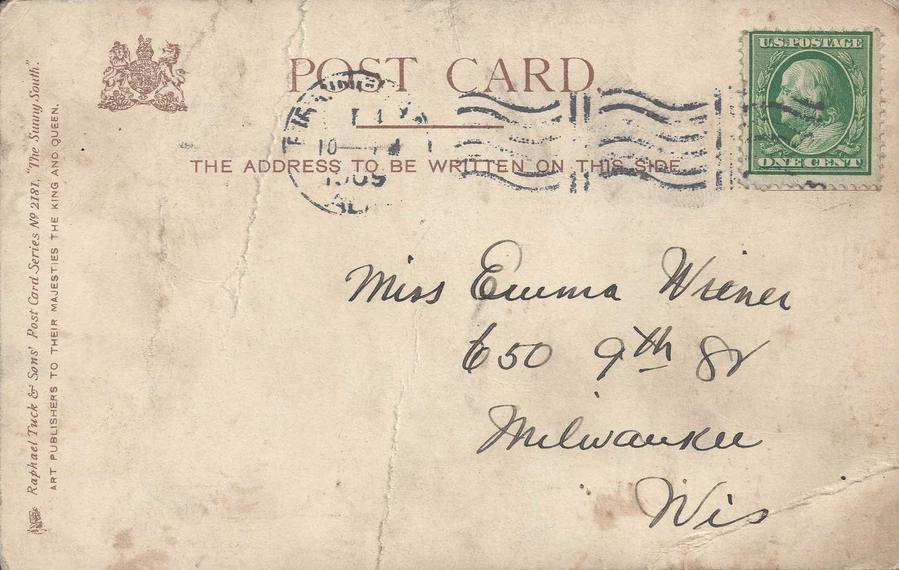 POST CARD.
THE ADDRESS TO BE WRITTEN ON THIS SIDE
10
1909
ALA
U.S.POSTAGE
ONE CENT
Miss Emma Wiener
650 9th St
Milwaukee
Wis
Raphael Tuck & Sons' Post Card Series No 2181, "The Sunny South".
ART PUBLISHERS TO THEIR MAJESTIES THE KING AND QUEEN.